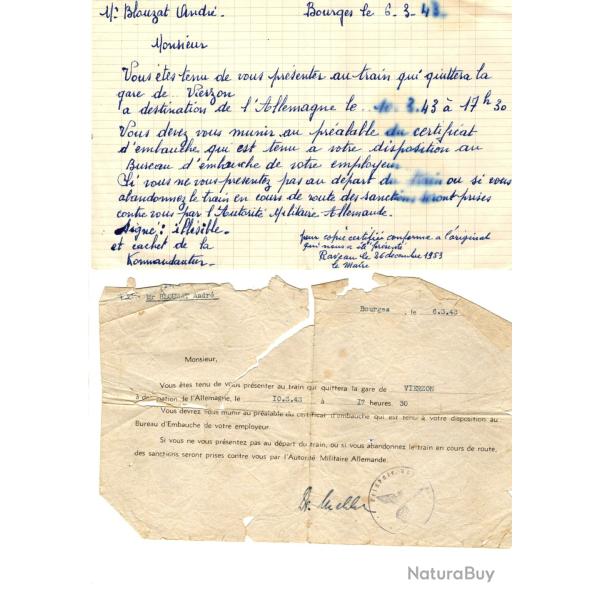 Mr Blouzat André. Bourges le 6.3.43.
Monsieur
Vous êtes tenu de vous présenter au train qui quittera la
gare de .. Vierzon
a destination de l'Allemagne le .. 10.3.43 à 17h 30
Vous devez vous munir au préalable du certificat
d'embauche qui est tenu à votre disposition au
Bureau d'embauche de votre employeur
Si vous ne vous présentez pas au départ du train ou si vous
abandonnez le train en cours de route des sanctions seront prises
contre vous par l'Autorité Militaire Allemande.
Signé: illisible.
et cachet de la
Kommandantur.
pour copie certifiée conforme a l'original
qui nous a été présenté
Raveau le 26 décembre 1953
le Maire
Mr BLOUZAT André
Bourges , le 6.3.43
Monsieur,
Vous êtes tenu de vous présenter au train qui quittera la gare de VIERZON
à destination de l'Allemagne, le 10.3.43 à 17 heures 30
Vous devrez vous munir au préalable du certificat d'embauche qui est tenu à votre disposition au
Bureau d'Embauche de votre employeur.
Si vous ne vous présentez pas au départ du train, ou si vous abandonnez le train en cours de route,
des sanctions seront prises contre vous par l'Autorité Militaire Allemande.
NaturaBuy